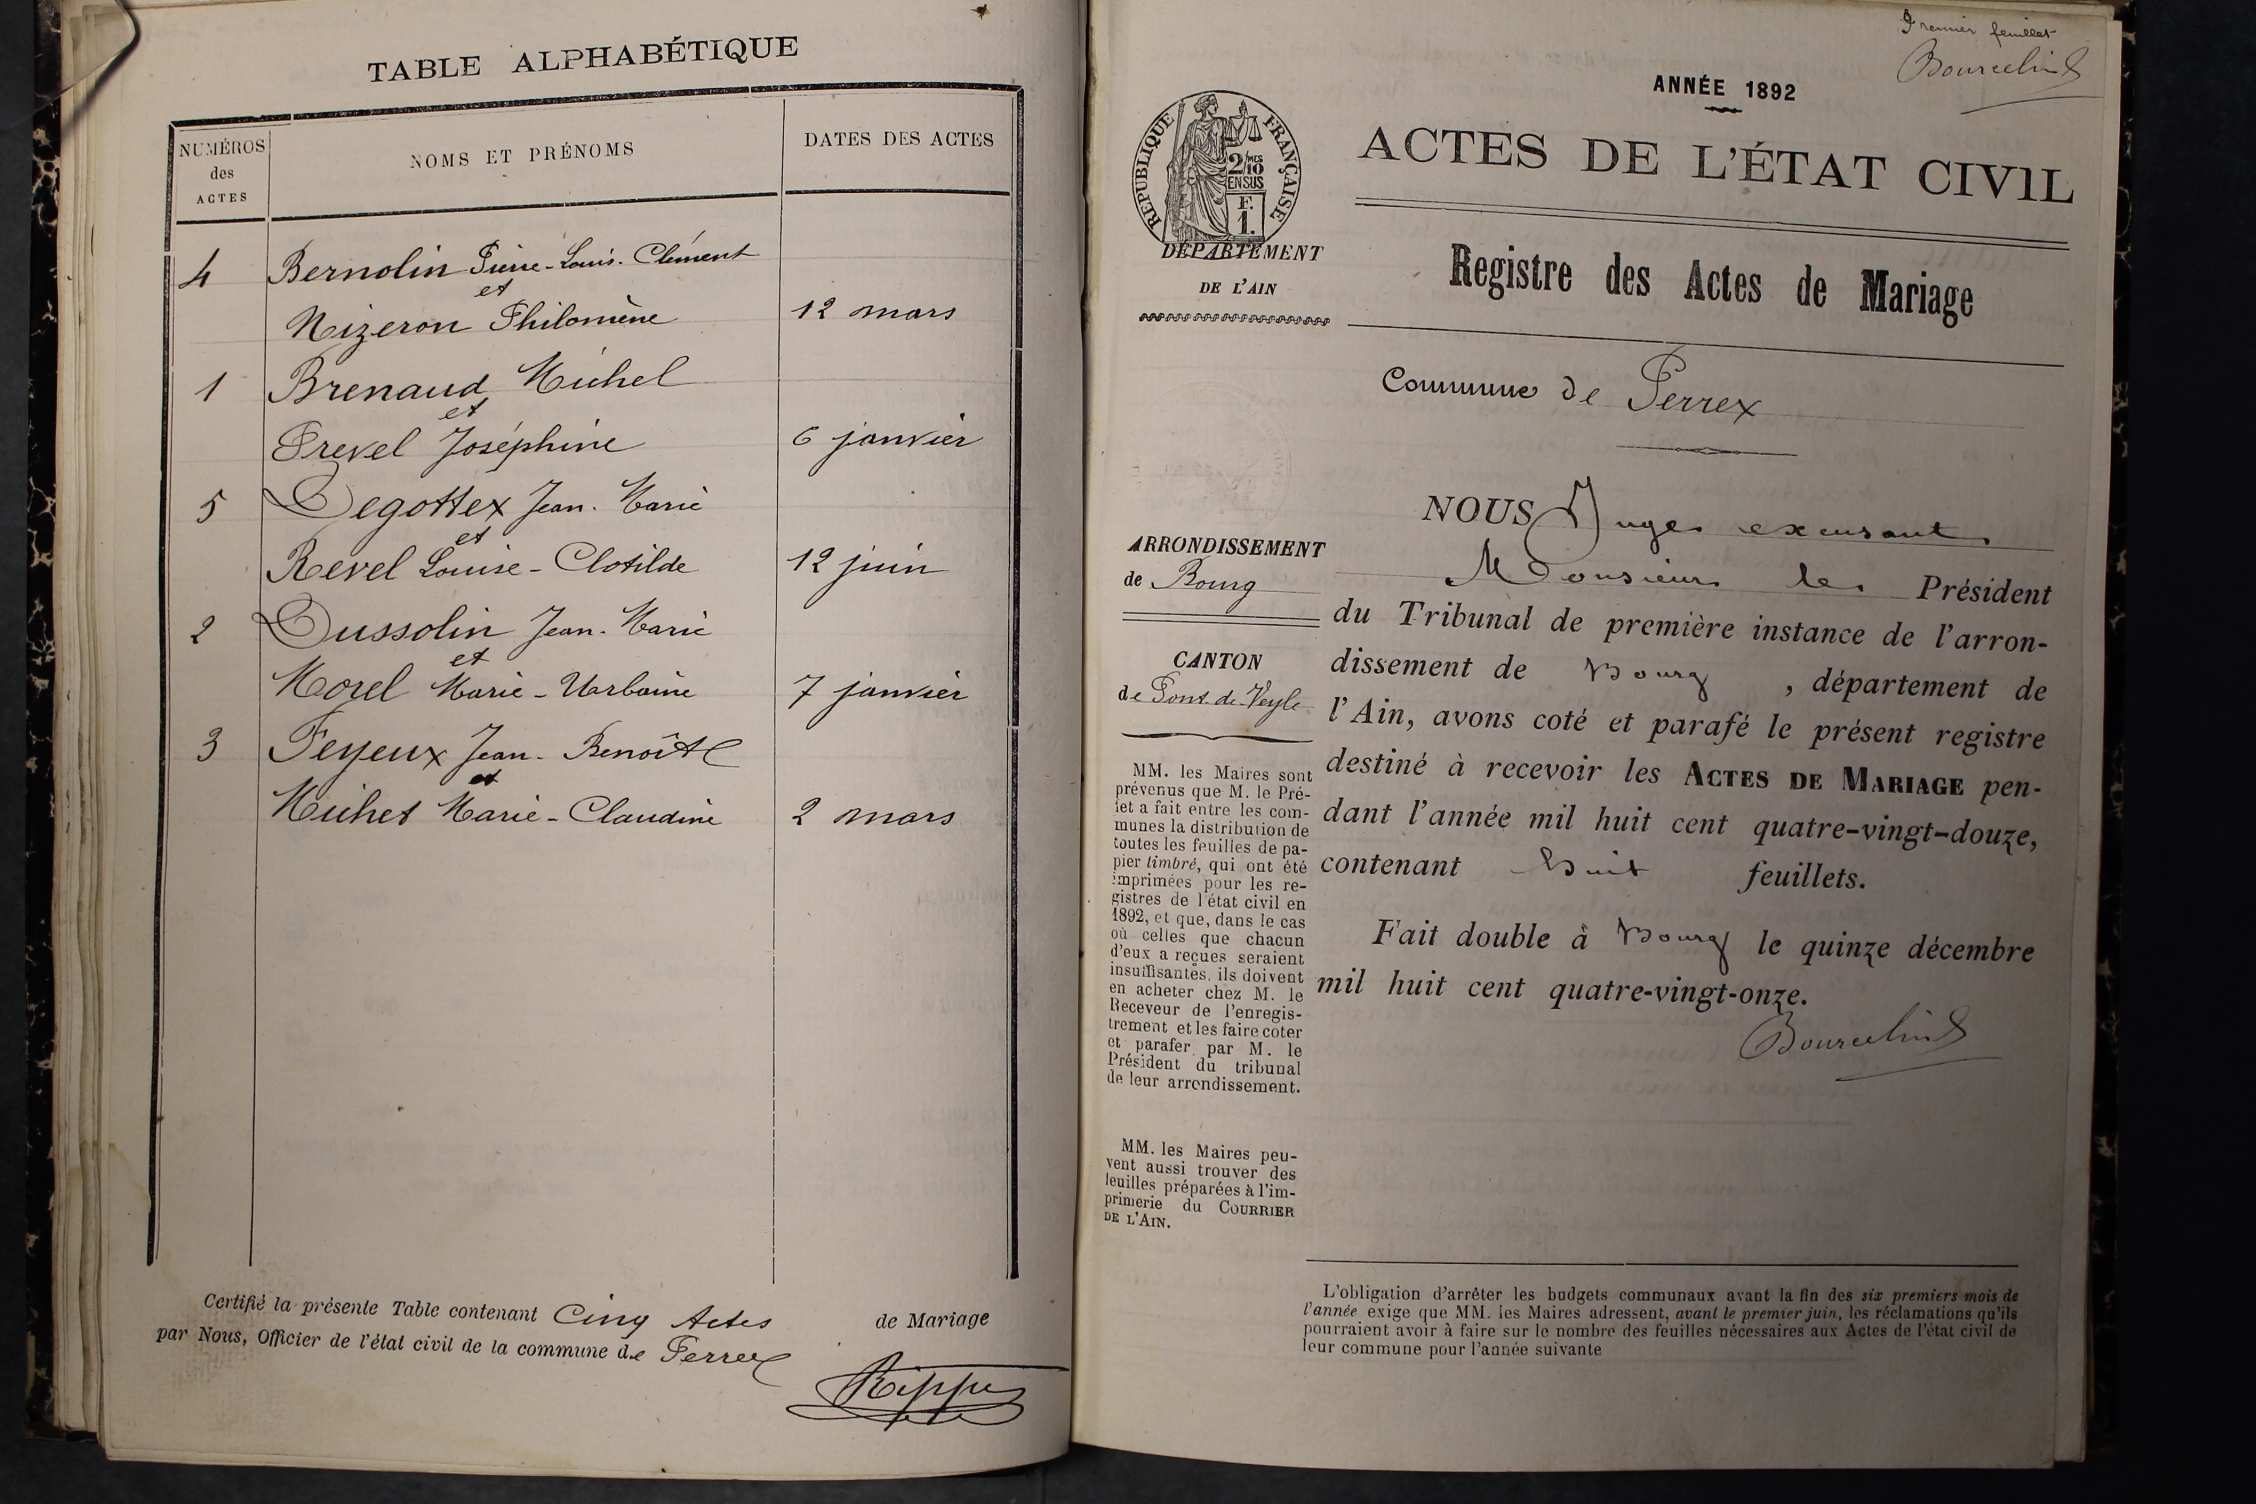 TABLE ALPHABÉTIQUE
NUMÉROS des ACTES
NOMS ET PRÉNOMS
DATES DES ACTES
4 Bernolin Pierre-Louis-Clément
et
Nizeron Philomène 12 mars
1 Brenaud Michel
et
Prevel Joséphine 6 janvier
5 Degottex Jean-Marie
et
Revel Louise-Clotilde 12 juin
2 Dussolin Jean-Marie
et
Morel Marie-Urbaine 7 janvier
3 Feyeux Jean-Benoît
et
Michet Marie-Claudine 2 mars
Certifié la présente Table contenant Cinq Actes de Mariage
par Nous, Officier de l'état civil de la commune de Perrex
Premier feuillet
ANNÉE 1892
RÉPUBLIQUE FRANÇAISE
2/10 MES
EN SUS
F.
1.
ACTES DE L'ÉTAT CIVIL
DÉPARTEMENT
DE L'AIN
Registre des Actes de Mariage
Commune de Perrex
ARRONDISSEMENT
de Bourg
CANTON
de Pont-de-Veyle
MM. les Maires sont
prévenus que M. le Pré-
fet a fait entre les com-
munes la distribution de
toutes les feuilles de pa-
pier timbré, qui ont été
imprimées pour les re-
gistres de l'état civil en
1892, et que, dans le cas
où celles que chacun
d'eux a reçues seraient
insuffisantes, ils doivent
en acheter chez M. le
Receveur de l'enregis-
trement et les faire coter
et parafer par M. le
Président du tribunal
de leur arrondissement.
MM. les Maires peu-
vent aussi trouver des
feuilles préparées à l'im-
primerie du COURRIER
DE L'AIN.
NOUS Juge
Monsieur le Président
du Tribunal de première instance de l'arron-
dissement de Bourg, département de
l'Ain, avons coté et parafé le présent registre
destiné à recevoir les ACTES DE MARIAGE pen-
dant l'année mil huit cent quatre-vingt-douze,
contenant huit feuillets.
Fait double à Bourg le quinze décembre
mil huit cent quatre-vingt-onze.
L'obligation d'arrêter les budgets communaux avant la fin des six premiers mois de
l'année exige que MM. les Maires adressent, avant le premier juin, les réclamations qu'ils
pourraient avoir à faire sur le nombre des feuilles nécessaires aux Actes de l'état civil de
leur commune pour l'année suivante